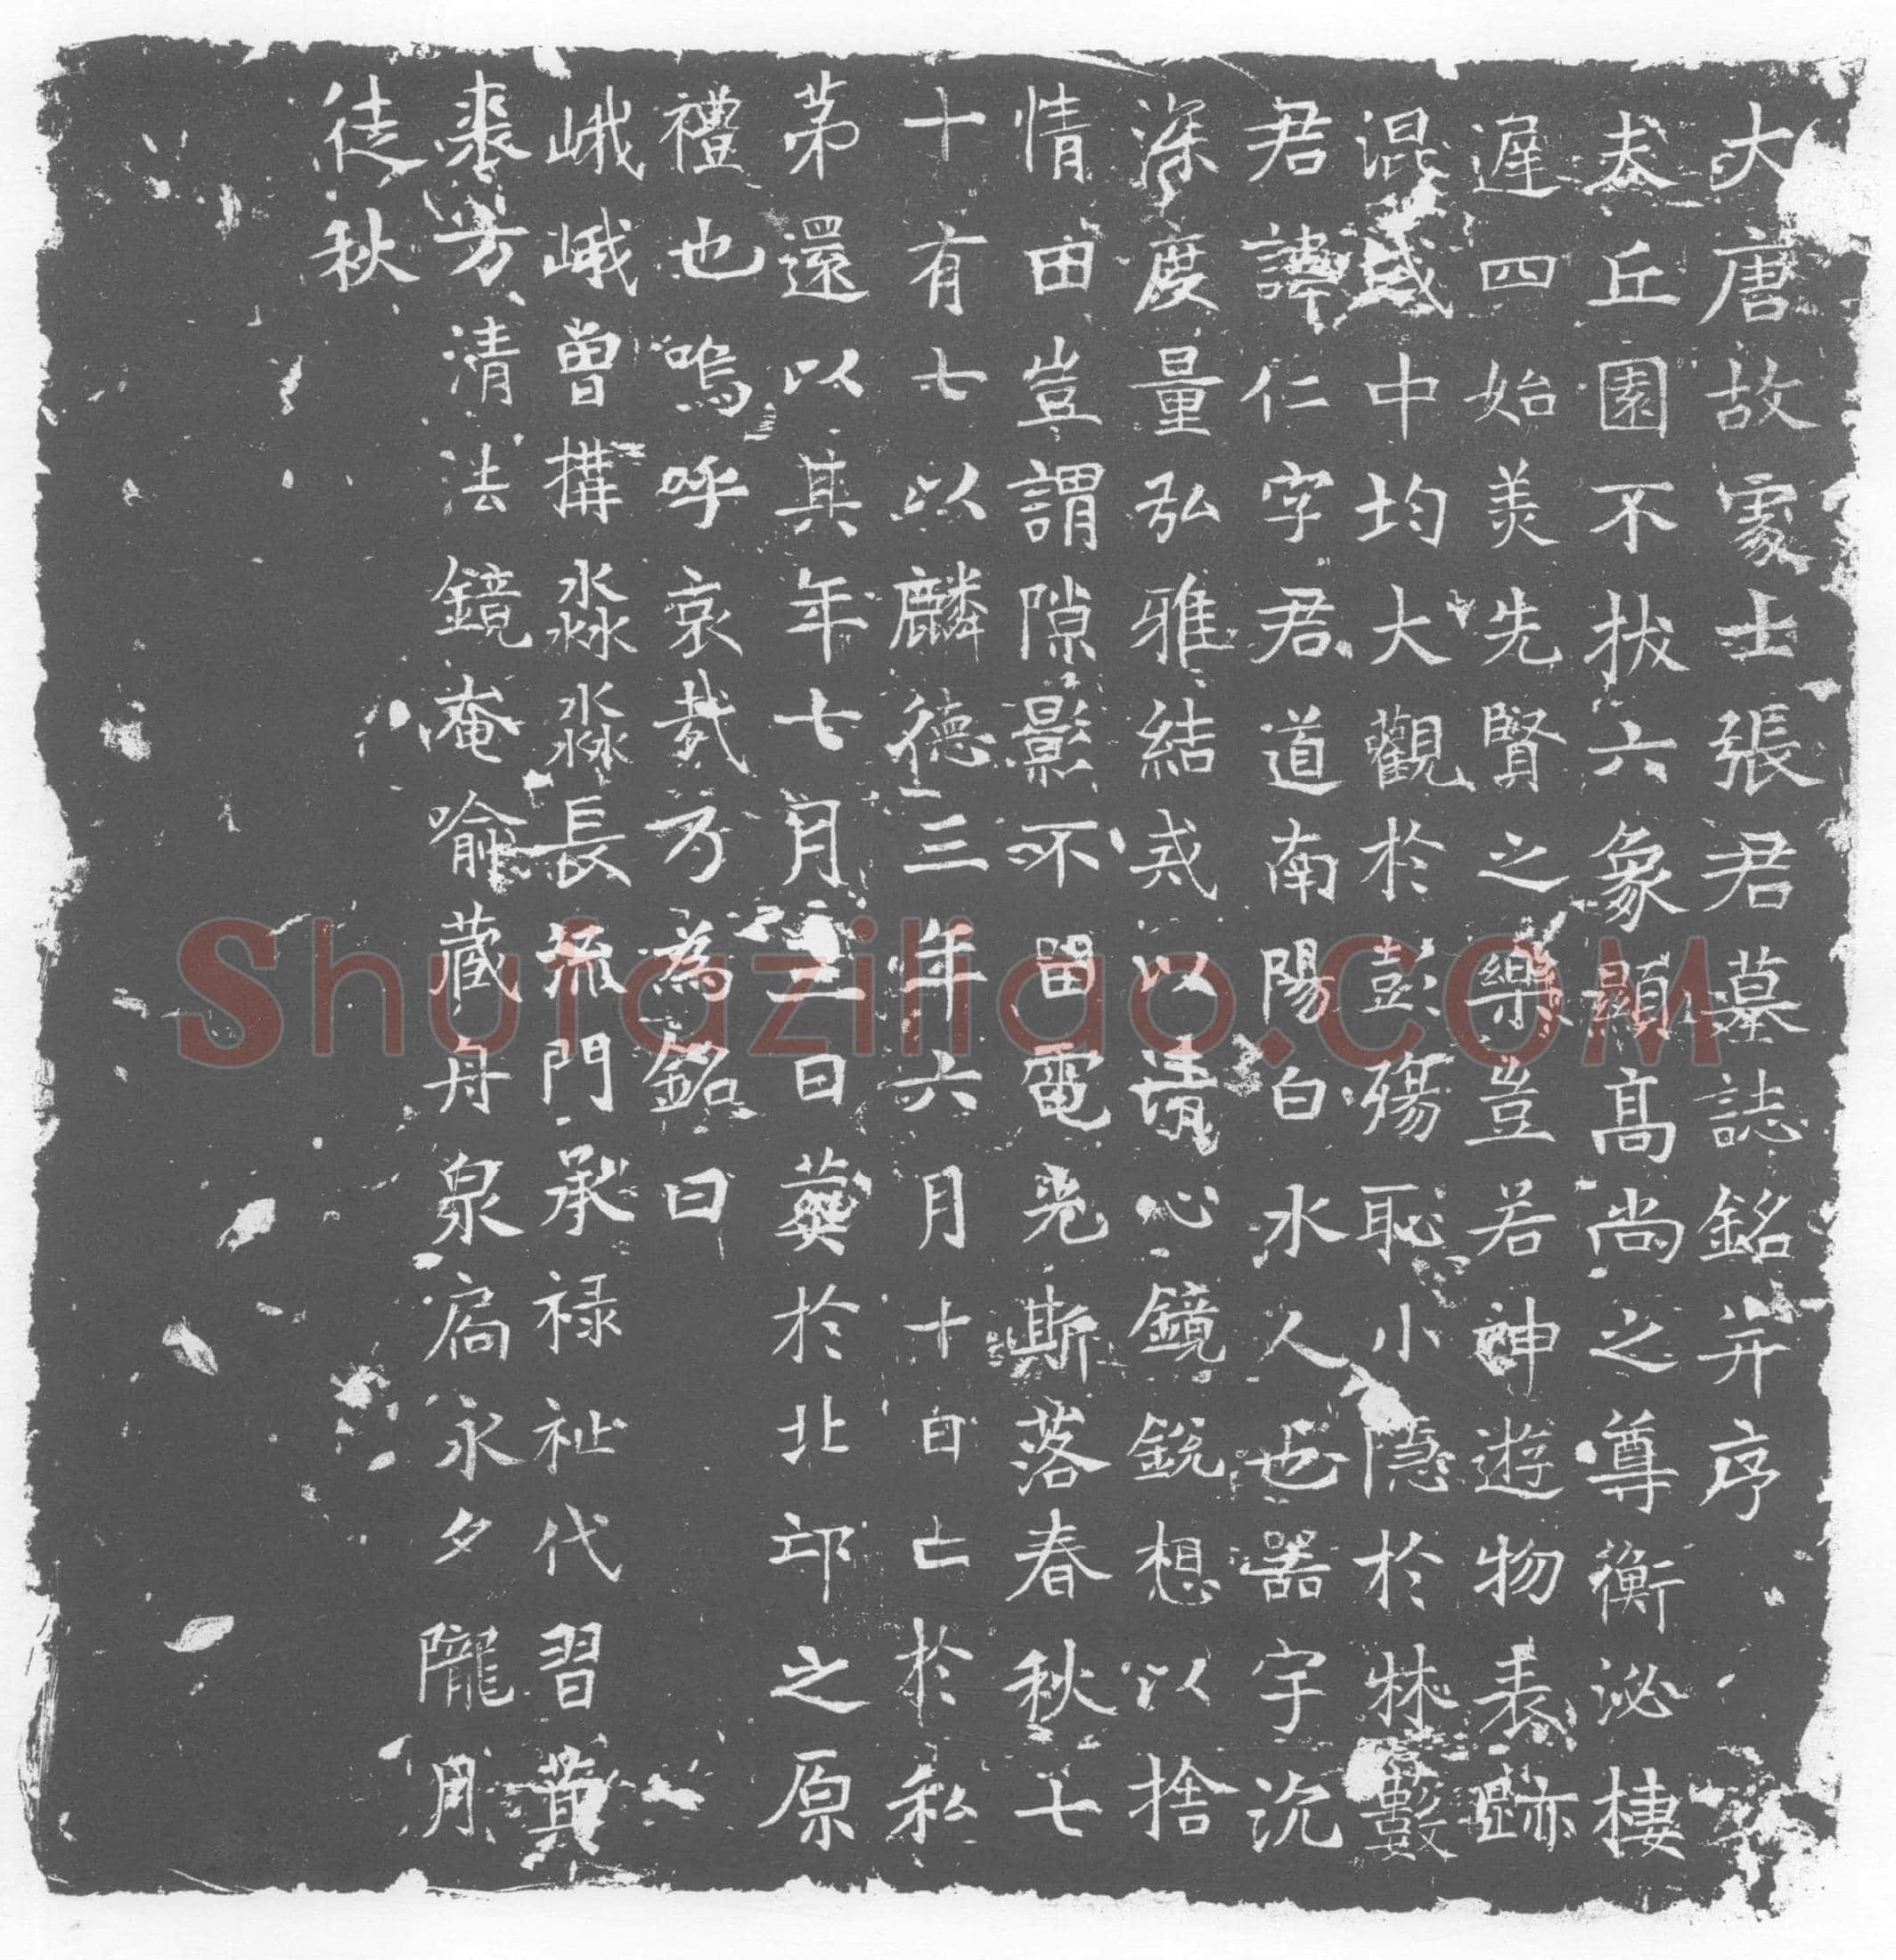 大唐故處士張君墓誌銘并序
夫丘園不拔六象顯高尚之尊衡泌棲
遲四始美先賢之樂豈若神遊物表跡
混域中均大觀於彭殤恥小隱於林藪
君諱仁字君道南陽白水人也器宇沉
深度量弘雅結戒以清心鏡銳想以捨
情田豈謂隙影不留電光斯落春秋七
十有七以麟德三年六月十日亡於私
第還以其年七月三日葬於北邙之原
禮也嗚呼哀哉乃為銘曰
峨峨曾構淼淼長流門承祿祉代習
裘方清法鏡奄喻藏舟泉扃永夕隴月
徒秋
Shufaziliao.COM